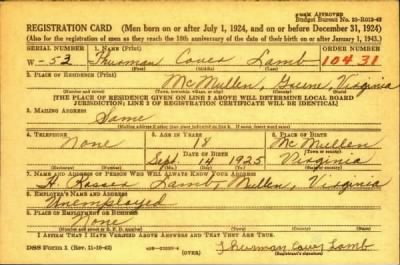 FORM APPROVED
Budget Bureau No. 33-R012-42
REGISTRATION CARD (Men born on or after July 1, 1924, and on or before December 31, 1924)
(Also for the registration of men as they reach the 18th anniversary of the date of their birth on or after January 1, 1943.)
SERIAL NUMBER
1. NAME (Print)
ORDER NUMBER
W-53
Thurman Lamb
10431
(First) (Middle) (Last)
2. PLACE OF RESIDENCE (Print)
McMullen, Virginia
(Number and street) (Town, township, village, or city) (County) (State)
[THE PLACE OF RESIDENCE GIVEN ON LINE 2 ABOVE WILL DETERMINE LOCAL BOARD
JURISDICTION; LINE 2 OF REGISTRATION CERTIFICATE WILL BE IDENTICAL]
3. MAILING ADDRESS
Same
[Mailing address if other than place indicated on line 2. If same, insert word same]
4. TELEPHONE
5. AGE IN YEARS
6. PLACE OF BIRTH
None
18
McMullen
DATE OF BIRTH
(Town or county)
Sept. 14 1925
Virginia
(Mo.) (Day) (Yr.)
(State or country)
7. NAME AND ADDRESS OF PERSON WHO WILL ALWAYS KNOW YOUR ADDRESS
H. Lamb, Mullen, Virginia
8. EMPLOYER'S NAME AND ADDRESS
Unemployed
9. PLACE OF EMPLOYMENT OR BUSINESS
None
(Number and street or R. F. D. number) (Town) (County) (State)
I AFFIRM THAT I HAVE VERIFIED ABOVE ANSWERS AND THAT THEY ARE TRUE.
DSS Form 1 (Rev. 11-16-42)
(OVER)
Thurman Lamb
(Registrant's signature)